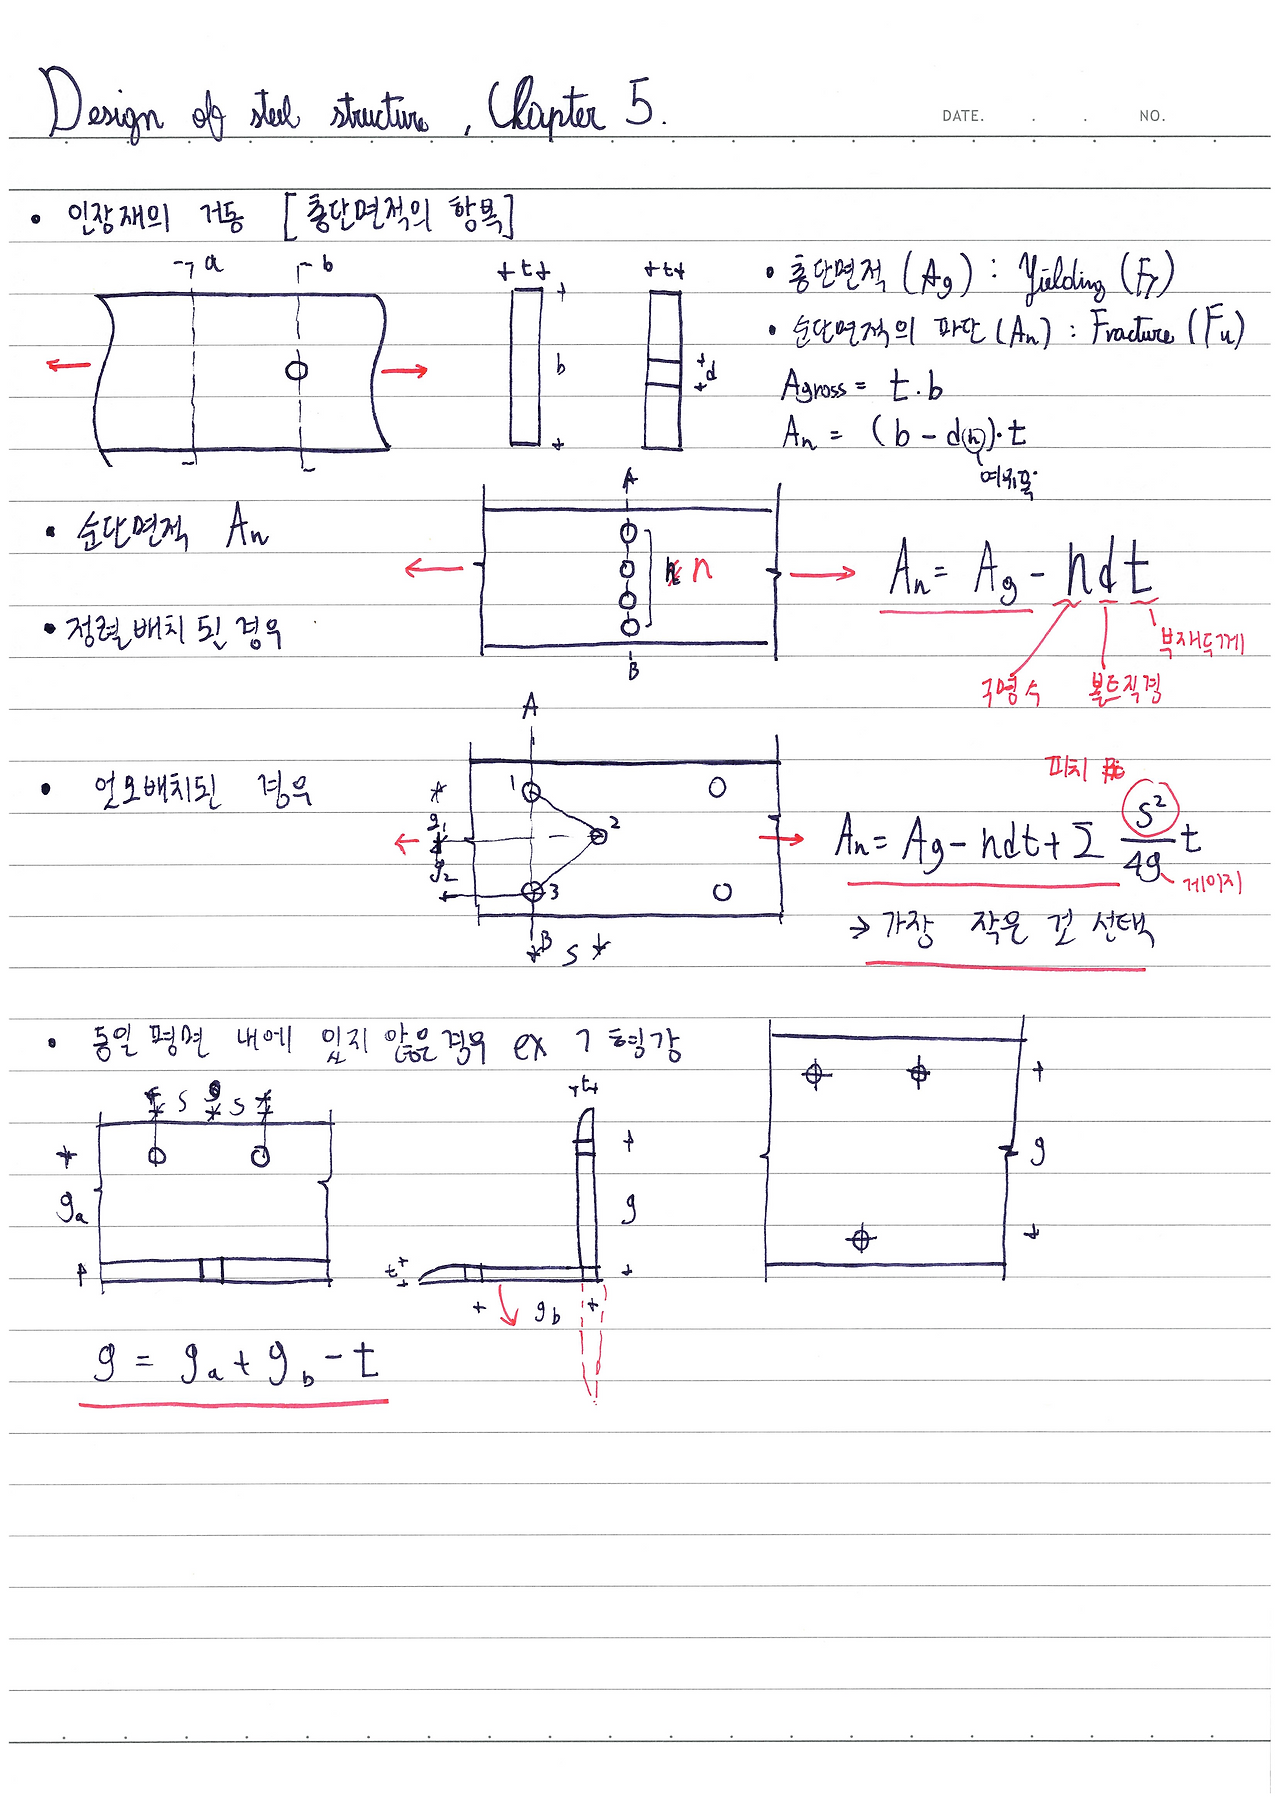 Design of steel structure, Chapter 5.
DATE. . . NO.
• 인장재의 거동 [총단면적의 항복]
a b
t t
b d
• 총단면적 (Ag) : Yielding (Fy)
• 순단면적의 파단 (An) : Fracture (Fu)
Agross = t·b
An = (b - d(h))·t
여유폭
• 순단면적 An
A
n
B
An = Ag - ndt
부재두께
구멍 수 볼트직경
• 정렬배치 된 경우
• 엇모배치된 경우
A
1
2
3
g1
g2
B
S
피치
An = Ag - ndt + Σ s²/4g t
게이지
→ 가장 작은 것 선택
• 동일 평면 내에 있지 않은 경우 ex ㄱ형강
S g S
ga
t
g
t
gb
g
g = ga + gb - t